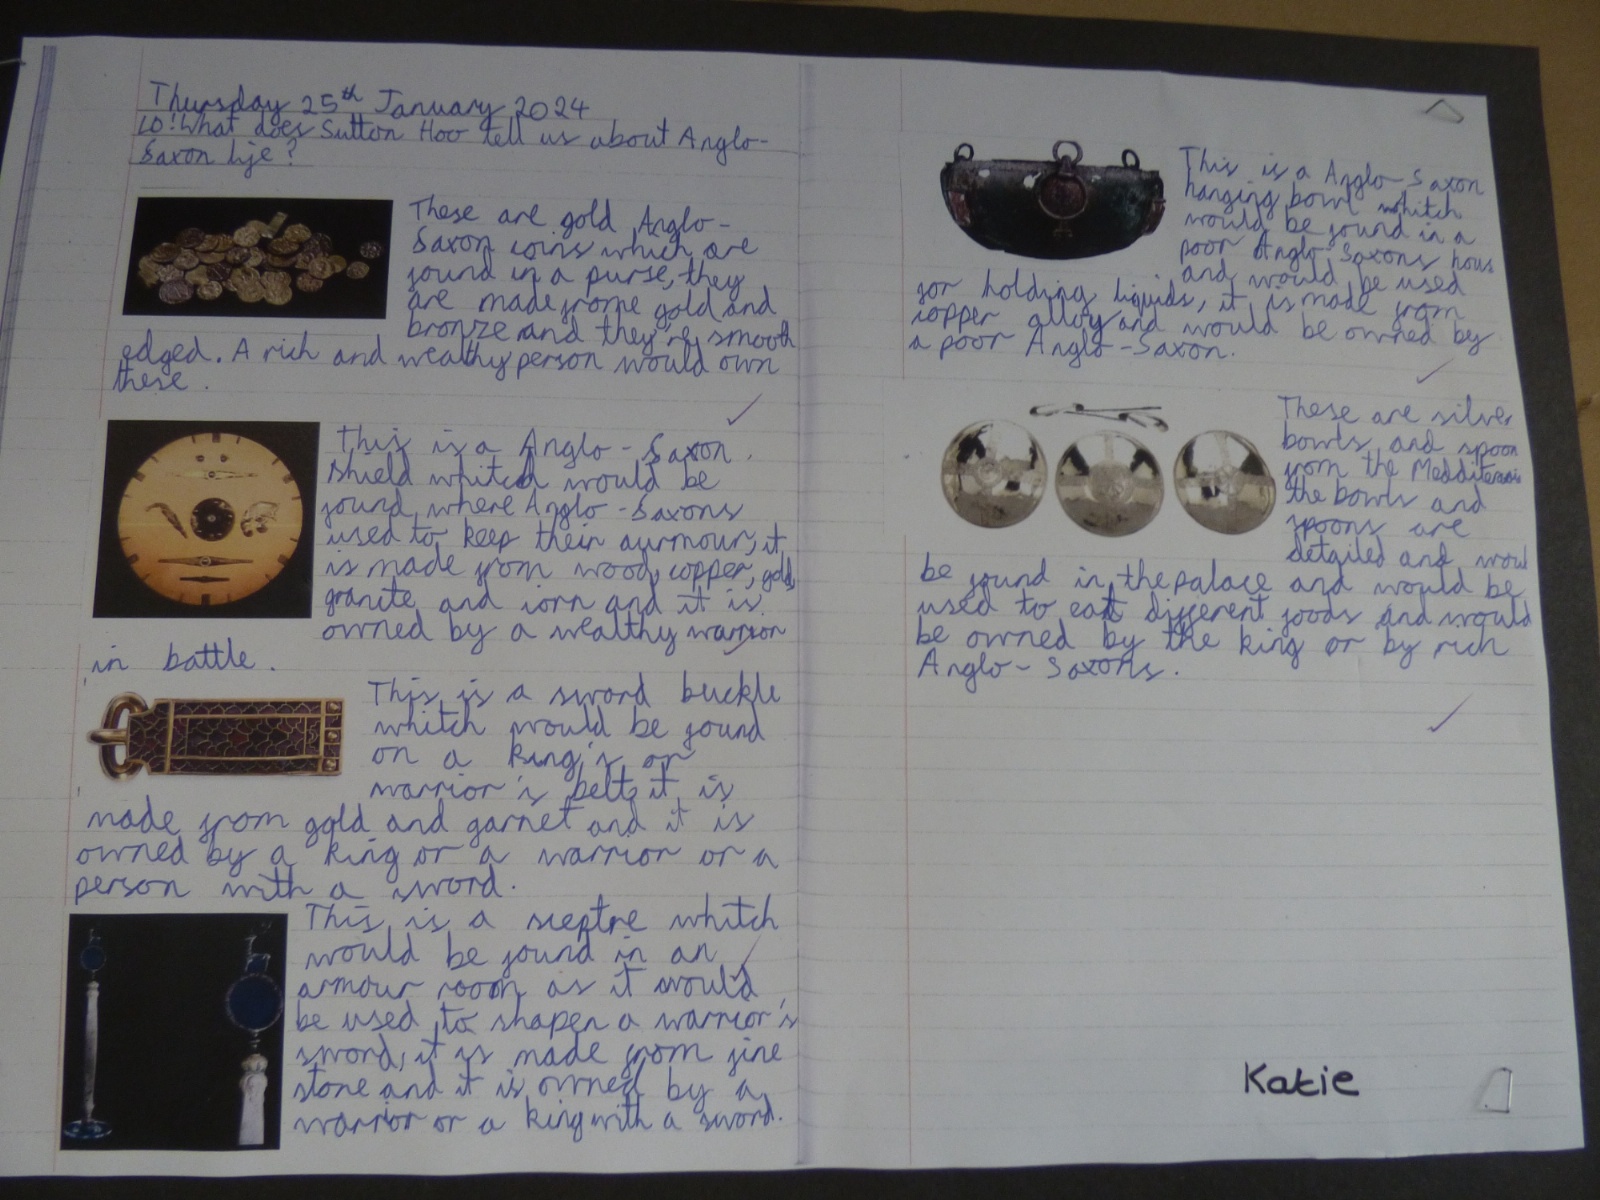 Thursday 25th January 2024
LO: What does Sutton Hoo tell us about Anglo-
Saxon life?
These are gold Anglo-
Saxon coins which are
found in a purse, they
are made frome gold and
bronze and they're smooth
edged. A rich and wealthy person would own
these.
This is a Anglo-Saxon
shield whitch would be
found where Anglo-Saxons
used to keep their aurmour, it
is made from wood, copper, gold,
granite and iorn and it is
owned by a wealthy warrior
in battle.
This is a sword buckle
whitch would be found
on a king's or
warrior's belt, it is
made from gold and garnet and it is
owned by a king or a warrior or a
person with a sword.
This is a sceptre whitch
would be found in an
armour room as it would
be used to shapen a warrior's
sword, it is made from fine
stone and it is owned by a
warrior or a king with a sword.
This is a Anglo-Saxon
hanging bowl whitch
would be found in a
poor Anglo-Saxons hous
and would be used
for holding liquids, it is made from
copper alloy and would be owned by
a poor Anglo-Saxon.
These are silver
bowls and spoon
from the
the bowls and
spoons are
detailed and woul
be found in the palace and would be
used to eat different foods and would
be owned by the king or by rich
Anglo-Saxons.
Katie